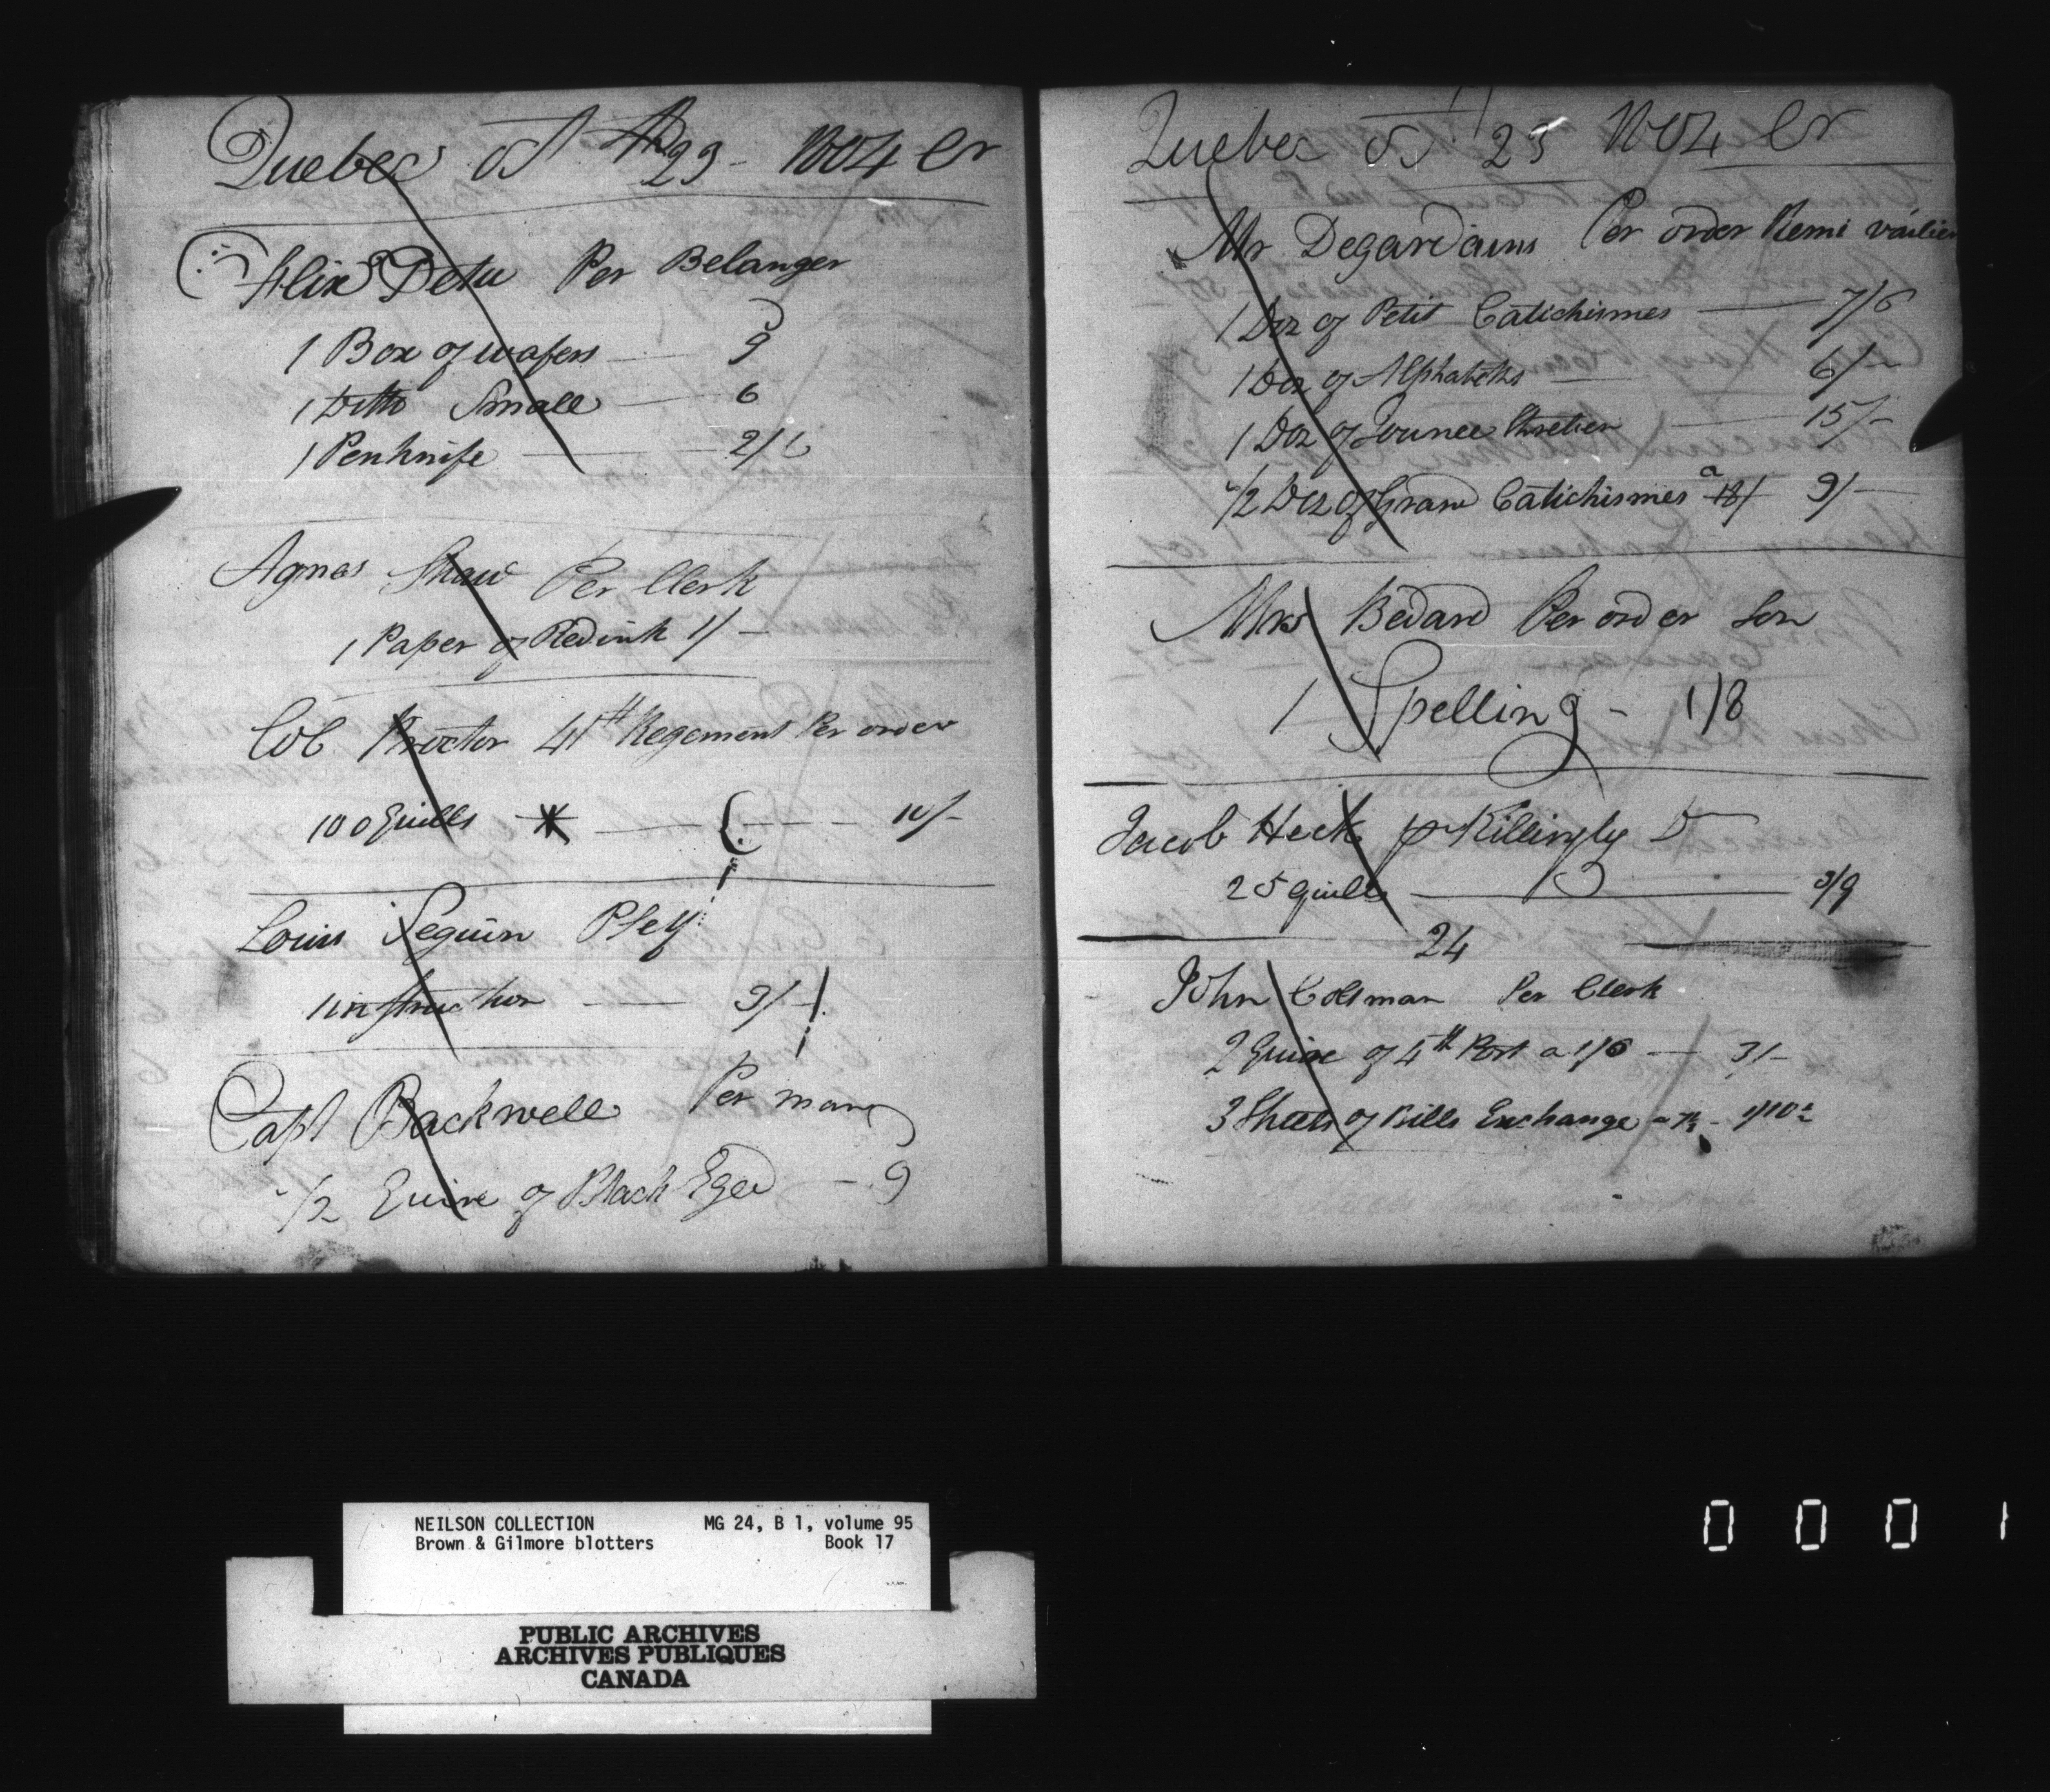 Quebec Oct 23 - 1804 Cr
Alix Detu Per Belanger
1 Box of wafers — 9
1 Ditto Small — 6
1 Penknife — 2/6
Agnas Shaw Per Clerk
1 Paper of Redink 1/-
Col Procter 41st Regement Per order
100 Quills — 10/-
Louis Seguin Self
1 instruction — 3/-
Capt Backwell Per man
1/2 Quire of Black Eged — 9
Quebec Oct 23 1804 Cr
Mr Degardains Per order Remi
1 Doz of Petit Catichismes — 7/6
1 Doz of Alphabeths — 6/-
1 Doz of Jounee Chretien — 15/-
1/2 Doz of Grand Catichismes a 18/ 9/-
Mrs Bedard Per order Son
1 Spelling - 1/8
Jacob Heck pr Killingly D
25 quills — 3/9
24
John Coltman Per Clerk
2 Quire of 4th Post a 1/6 — 3/-
3 Sheets of Bills Exchange a 7½ - 1/10½
NEILSON COLLECTION MG 24, B 1, volume 95
Brown & Gilmore blotters Book 17
PUBLIC ARCHIVES
ARCHIVES PUBLIQUES
CANADA
0001